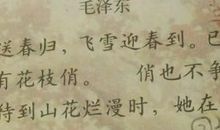 毛泽东
送春归，飞雪迎春到。已
有花枝俏。 俏也不争
待到山花烂漫时，她在